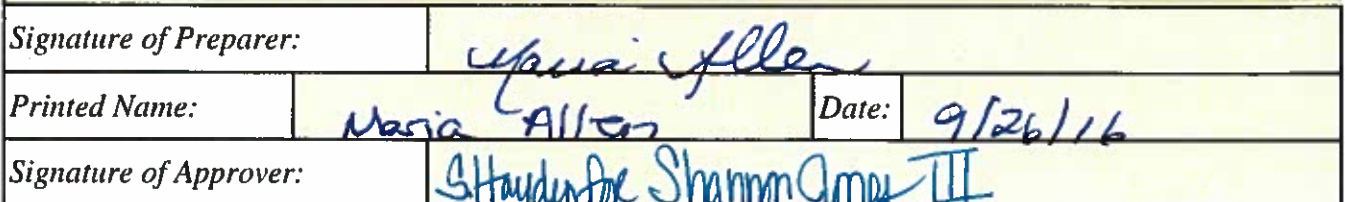 Signature of Preparer: Maria Allen
Printed Name: Maria Allen Date: 9/26/16
Signature of Approver: S. Hayden for Shannon Ames III